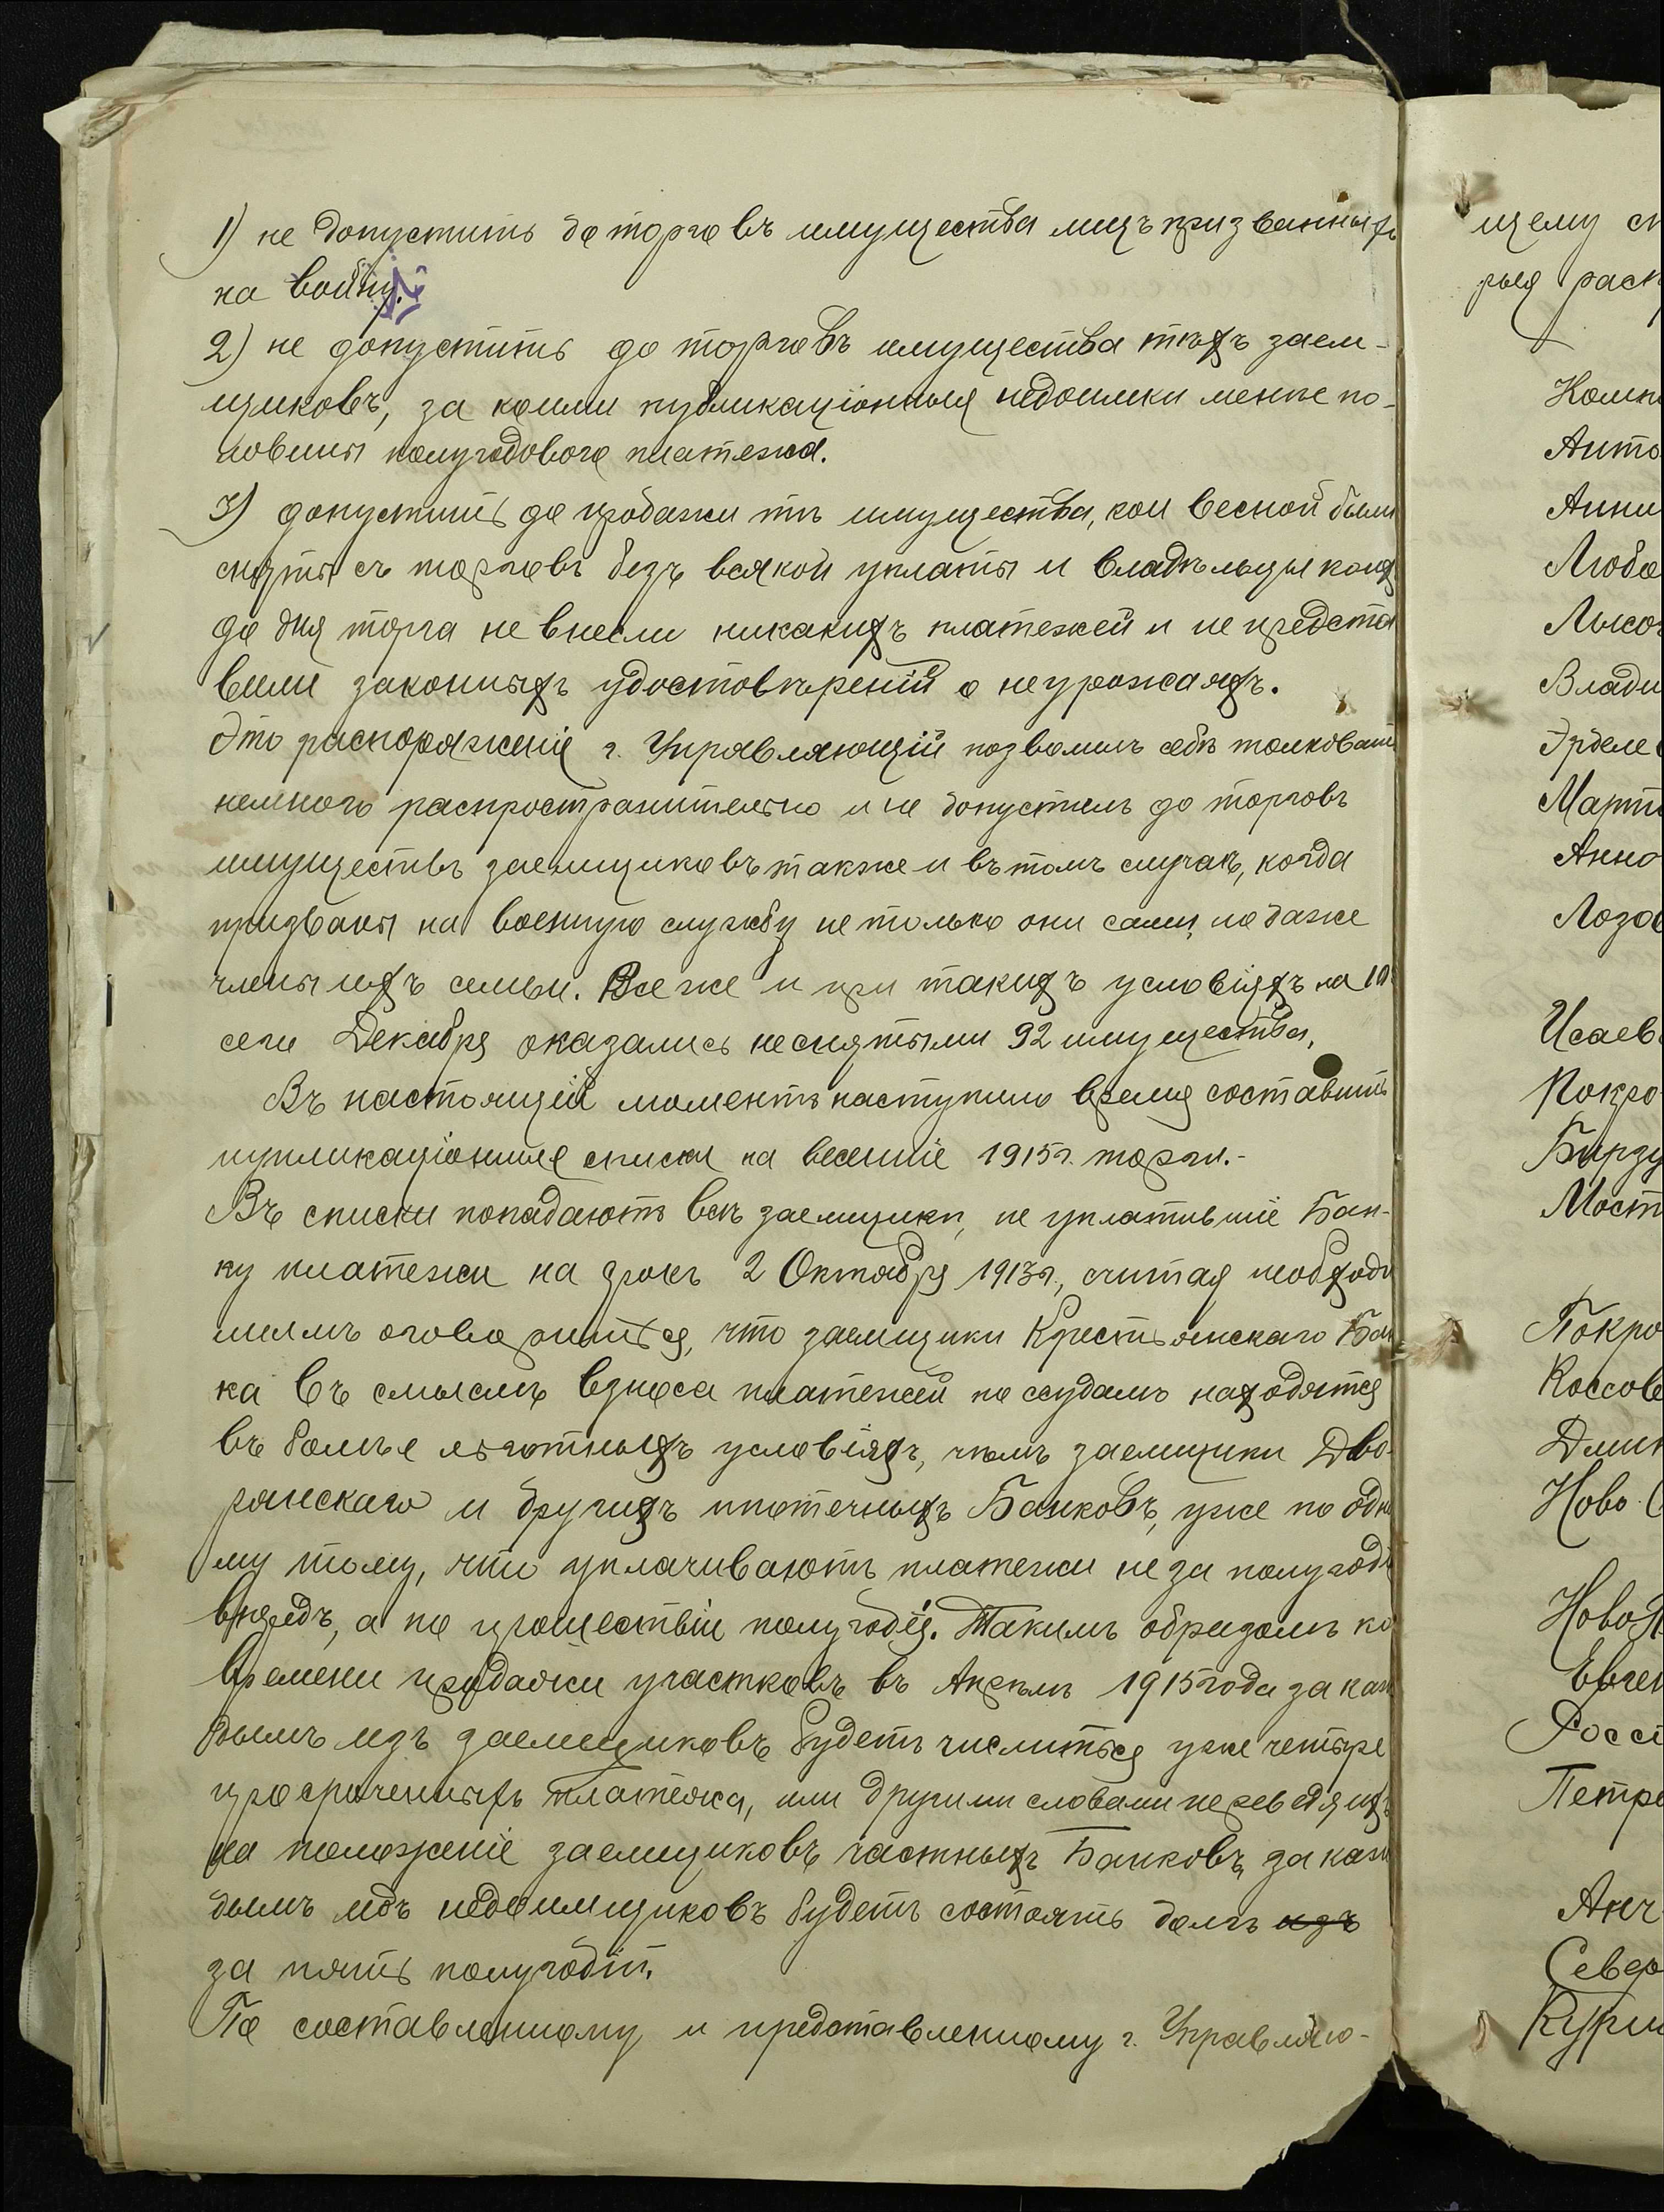 1) не допустить до торговъ имущества лицъ призванныхъ
на войну.
2) не допустить до торговъ имущества тѣхъ заем-
щиковъ, за коими публикаціонныя недоимки менѣе по-
ловины полугодового платежа.
3) допустить до продажи тѣ имущества, кои весной были
сняты съ торговъ безъ всякой уплаты и владѣльцы коихъ
до дня торга не внесли никакихъ платежей и не предста
вили законныхъ удостовѣреній о неурожаяхъ.
Это распоряженіе г. Управляющій позволилъ себѣ толковать
немного распространительно и не допустилъ до торговъ
имуществъ заемщиковъ также и въ томъ случаѣ, когда
призваны на военную службу не только они сами, но даже
члены ихъ семьи. Все же и при такихъ условіяхъ на 10
сего Декабря оказались неснятыми 92 имущества.
Въ настоящій моментъ наступило время составить
публикаціонные списки на весенніе 1915г. торги.-
Въ списки попадаютъ всѣ заемщики, не уплатившіе Бан-
ку платежи на срокъ 2 Октября 1913г., считая необходи
мымъ оговориться, что заемщики Крестьянскаго Бан
ка въ смыслѣ взноса платежей по ссудамъ находятся
въ болѣе льготныхъ условіяхъ, чѣмъ заемщики Дво-
рянскаго и другихъ ипотечныхъ Банковъ, уже по одно
му тому, что уплачиваютъ платежи не за полугодіе
впередъ, а по прошествіи полугодія. Такимъ образомъ ко
времени продажи участковъ въ Апрѣлѣ 1915 года за каж
дымъ изъ заемщиковъ будетъ числиться уже четыре
просроченныхъ платежа, или другими словами переведя ихъ
на положеніе заемщиковъ частныхъ Банковъ, за каж
дымъ изъ недоимщиковъ будетъ состоять долгъ изъ
за пять полугодій.
По составленному и представленному г. Управляю-
щему сп
рыя расп
Анто
Анни
Любо
Лысо
Влади
Эрделе
Марти
Анно
Лозов
Исаев
Покро
Бирзу
Мост
Покро
Коссове
Ново-
Ново
Евген
Россі
Петро
Анч
Север